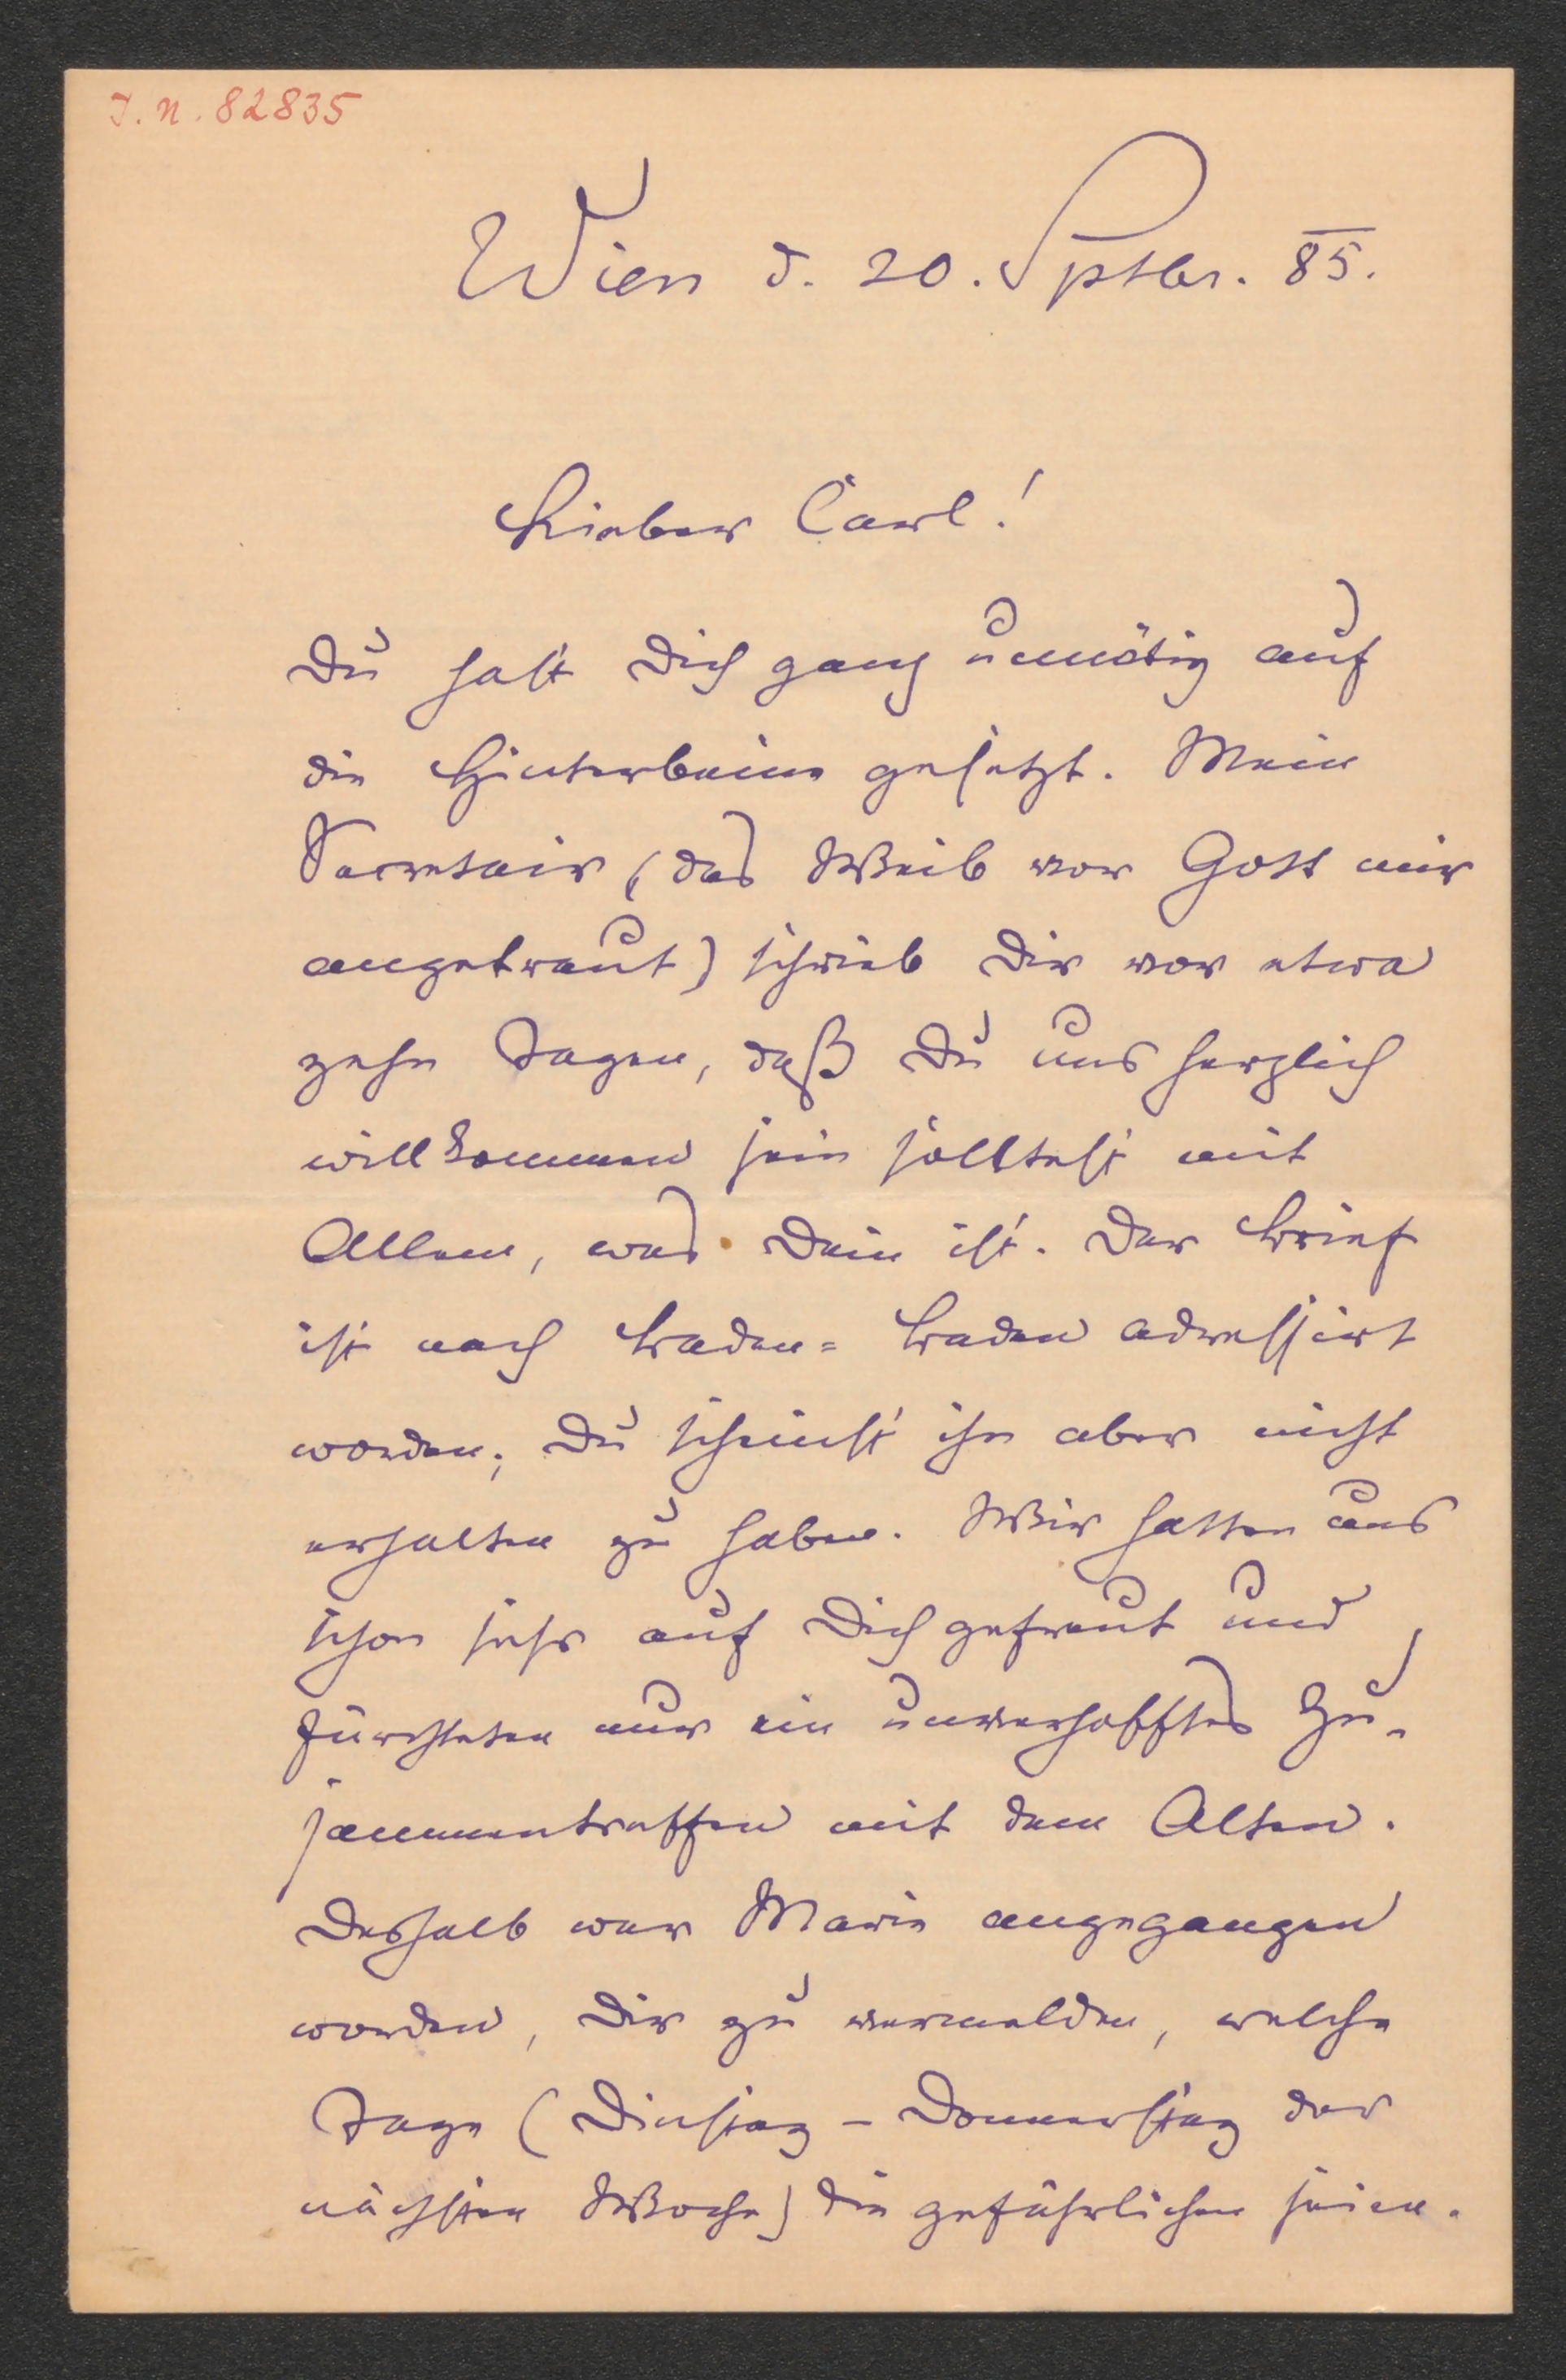 J.N. 82835
Wien d. 20. Sptbr. 85.
Lieber Carl!
Du hast Dich ganz unnötig auf
die Hinterbeine gesetzt. Mein
Secretair (das Weib vor Gott mir
angetraut) schrieb Dir vor etwa
zehn Tagen, daß Du uns herzlich
willkommen sein solltest mit
Allem, was Dein ist. Der Brief
ist nach Baden=Baden adressirt
worden; Du scheinst ihn aber nicht
erhalten zu haben. Wir hatten uns
schon sehr auf Dich gefreut und
fürchteten nur ein unverhofftes Zu-
sammentreffen mit dem Alten.
Deshalb war Marie angegangen
worden, Dir zu vermelden, welche
Tage (Dinstag – Donnerstag der
nächsten Woche) die gefährlichen seien.